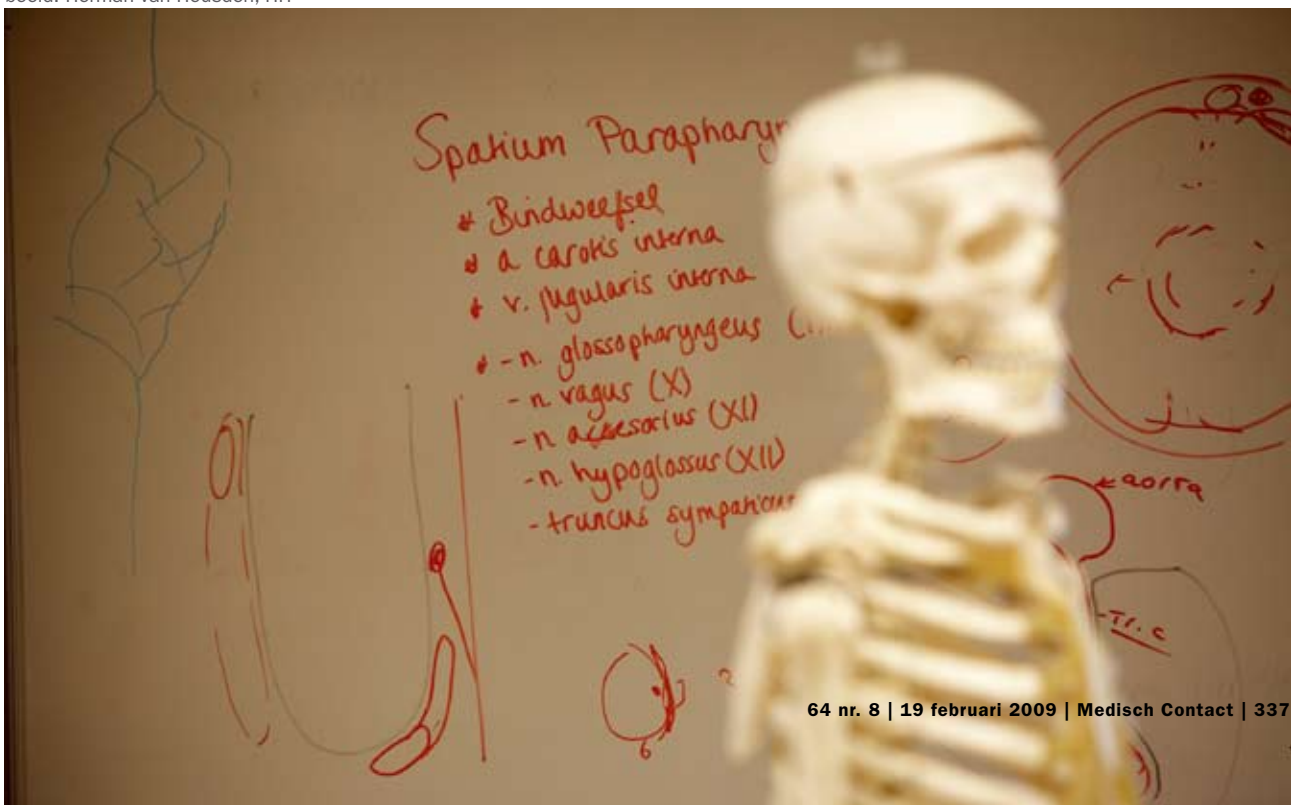 beeld: Herman van Heusden,
Spatium Parapharyn
* Bindweefsel
* a carotis interna
* v. jugularis interna
* - n. glossopharyngeus (
- n. vagus (X)
- n. accesorius (XI)
- n. hypoglossus (XII)
- truncus sympaticus
aorta
Tr. c
6
64 nr. 8 | 19 februari 2009 | Medisch Contact | 337